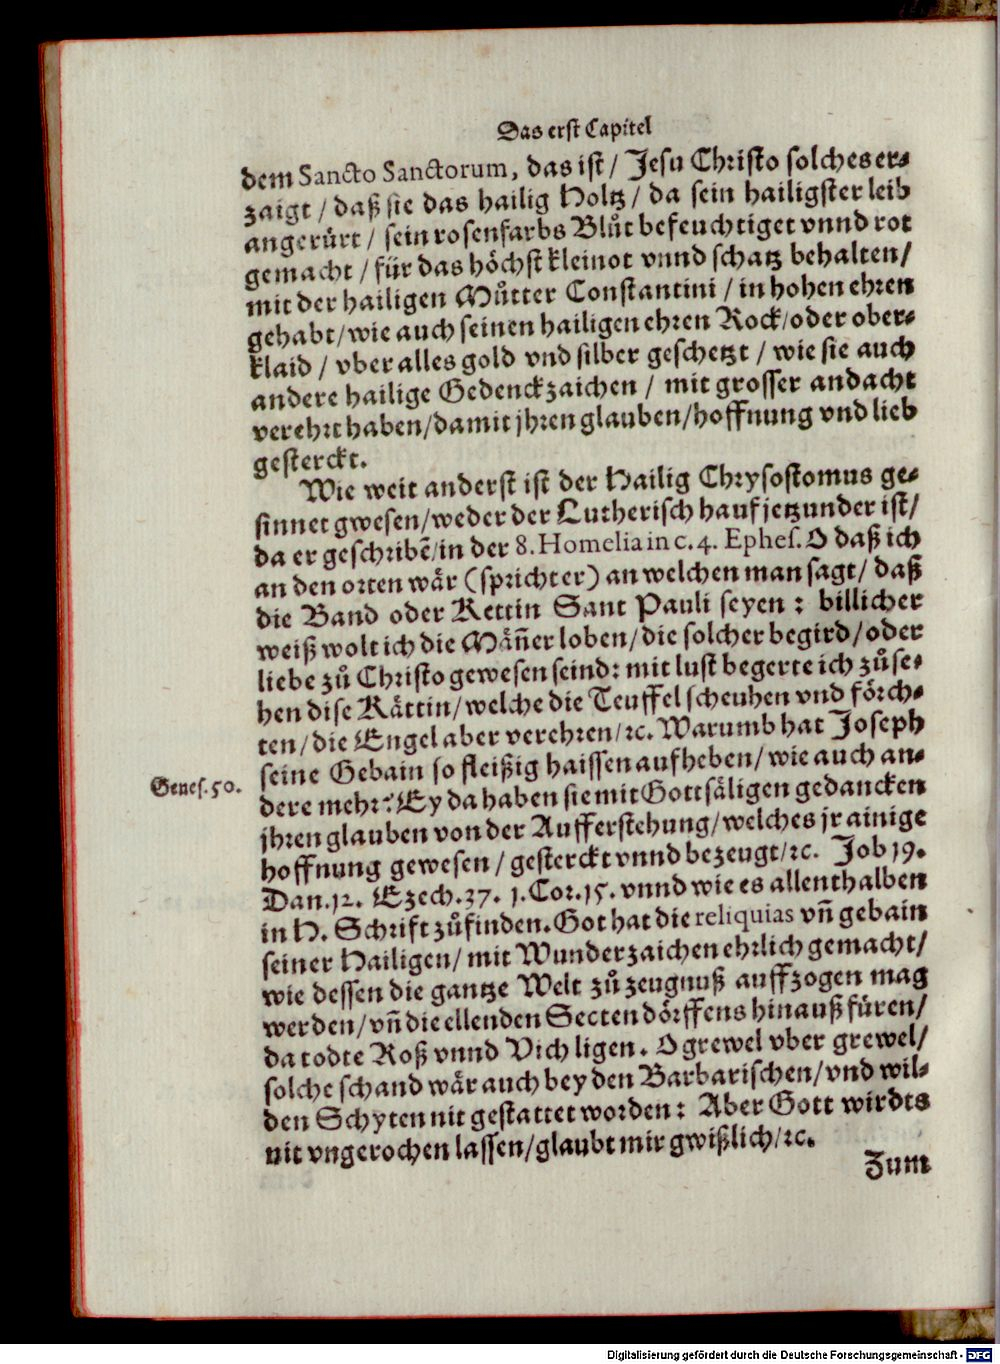 Das erst Capitel
dem Sancto Sanctorum, das ist / Jesu Christo solches er⸗
zaigt / daß sie das hailig Holtz / da sein hailigster leib
angerürt / sein rosenfarbs Blůt befeuchtiget vnnd rot
gemacht / für das höchst kleinot vnnd schatz behalten/
mit der hailigen Můtter Constantini / in hohen ehren
gehabt/wie auch seinen hailigen ehren Rock/oder ober⸗
klaid / vber alles gold vnd silber geschetzt / wie sie auch
andere hailige Gedenckzaichen / mit grosser andacht
verehrt haben/damit jhren glauben/hoffnung vnd lieb
gesterckt.
Wie weit anderst ist der Hailig Chrysostomus ge⸗
sinnet gwesen/weder der Lutherisch hauf jetzunder ist/
da er geschribē/in der 8. Homelia in c. 4. Ephes. O daß ich
an den orten wär (spricht er) an welchen man sagt/ daß
die Band oder Kettin Sant Pauli seyen : billicher
weiß wolt ich die Mäñer loben/die solcher begird/oder
liebe zů Christo gewesen seind: mit lust begerte ich zůse⸗
hen dise Kättin/welche die Teuffel scheuhen vnd förch⸗
ten/die Engel aber verehren/ꝛc. Warumb hat Joseph
seine Gebain so fleißig haissen aufheben/wie auch an⸗
Genes. 50.
dere mehr? Ey da haben sie mit Gottsäligen gedancken
jhren glauben von der Aufferstehung/welches jr ainige
hoffnung gewesen/gesterckt vnnd bezeugt/ꝛc. Job 19.
Dan.12. Ezech.37. 1.Cor.15. vnnd wie es allenthalben
in H. Schrift zůfinden. Got hat die reliquias vñ gebain
seiner Hailigen/ mit Wunderzaichen ehrlich gemacht/
wie dessen die gantze Welt zů zeugnuß auffzogen mag
werden/vñ die ellenden Secten dörffens hinauß füren/
da todte Roß vnnd Vich ligen. O grewel vber grewel/
solche schand wär auch bey den Barbarischen/vnd wil⸗
den Schyten nit gestattet worden: Aber Gott wirdts
nit vngerochen lassen/glaubt mir gwißlich/ꝛc.
Zum
Digitalisierung gefördert durch die Deutsche Forschungsgemeinschaft - DFG